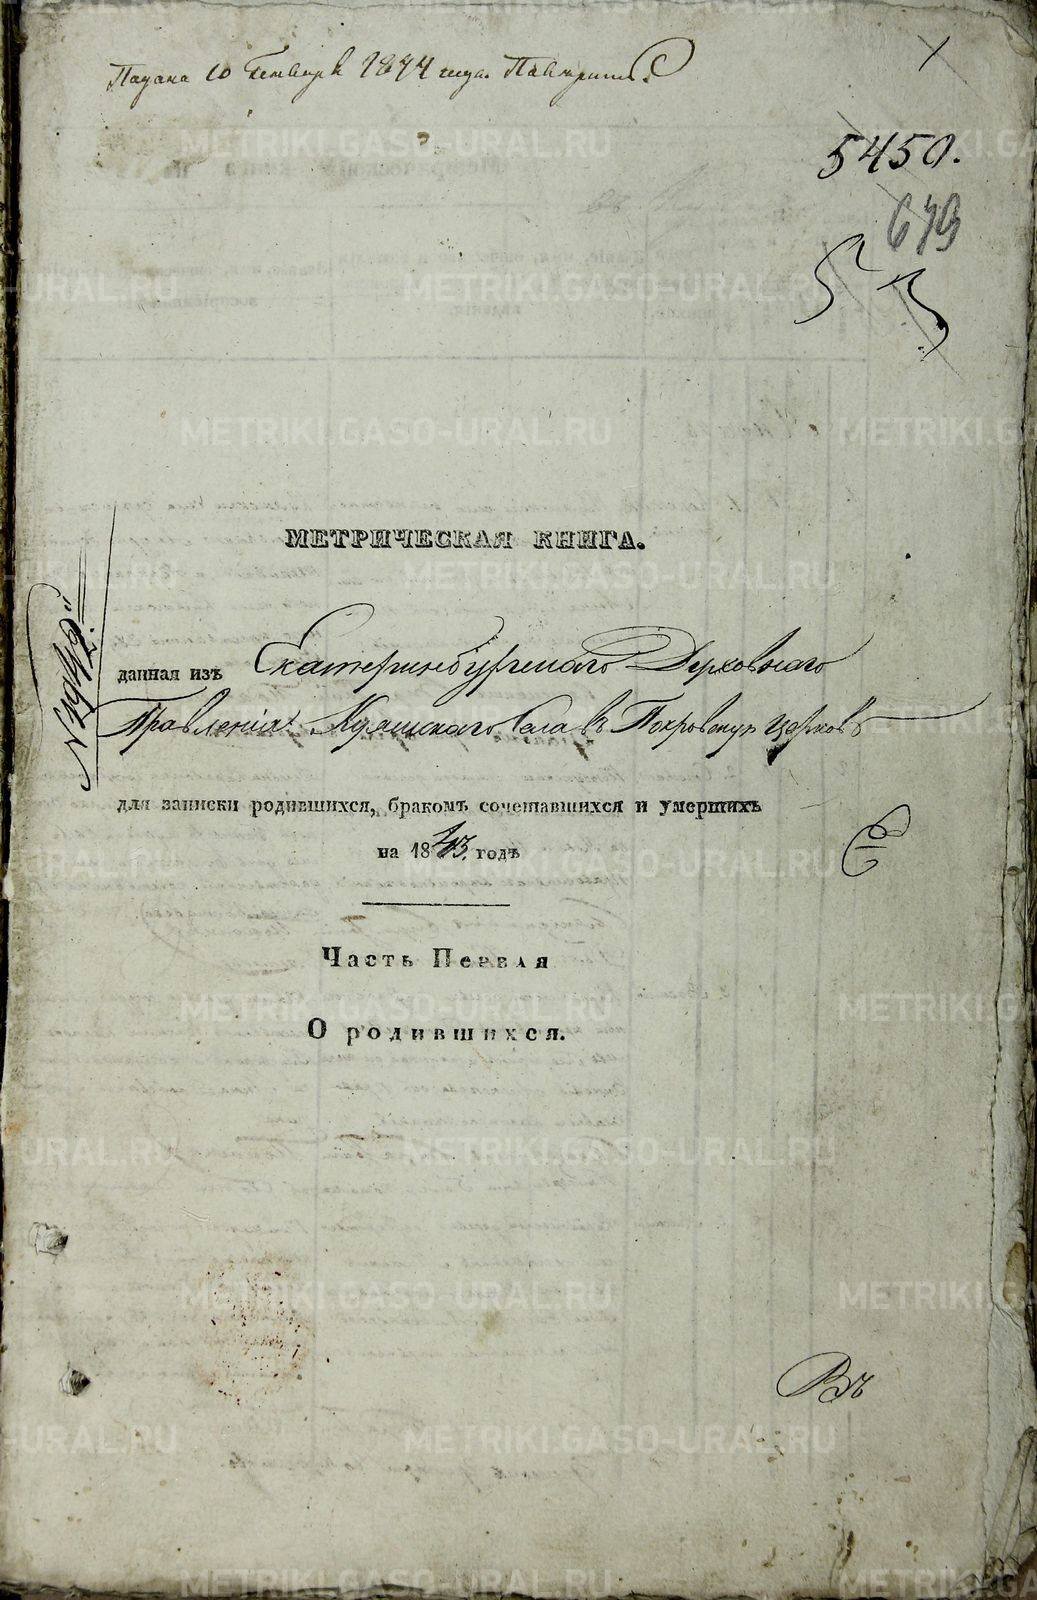 Подана 10 Генваря 1844 года.
5450.
679
МЕТРИЧЕСКАЯ КНИГА.
данная изъ Екатеринбургскаго Духовнаго
Правленія Куяшскаго Села въ Покровскую церковь
для записки родившихся, бракомъ сочетавшихся и умершихъ
на 1843. годъ
Часть Первая
О родившихся.
METRIKI.GASO-URAL.RU